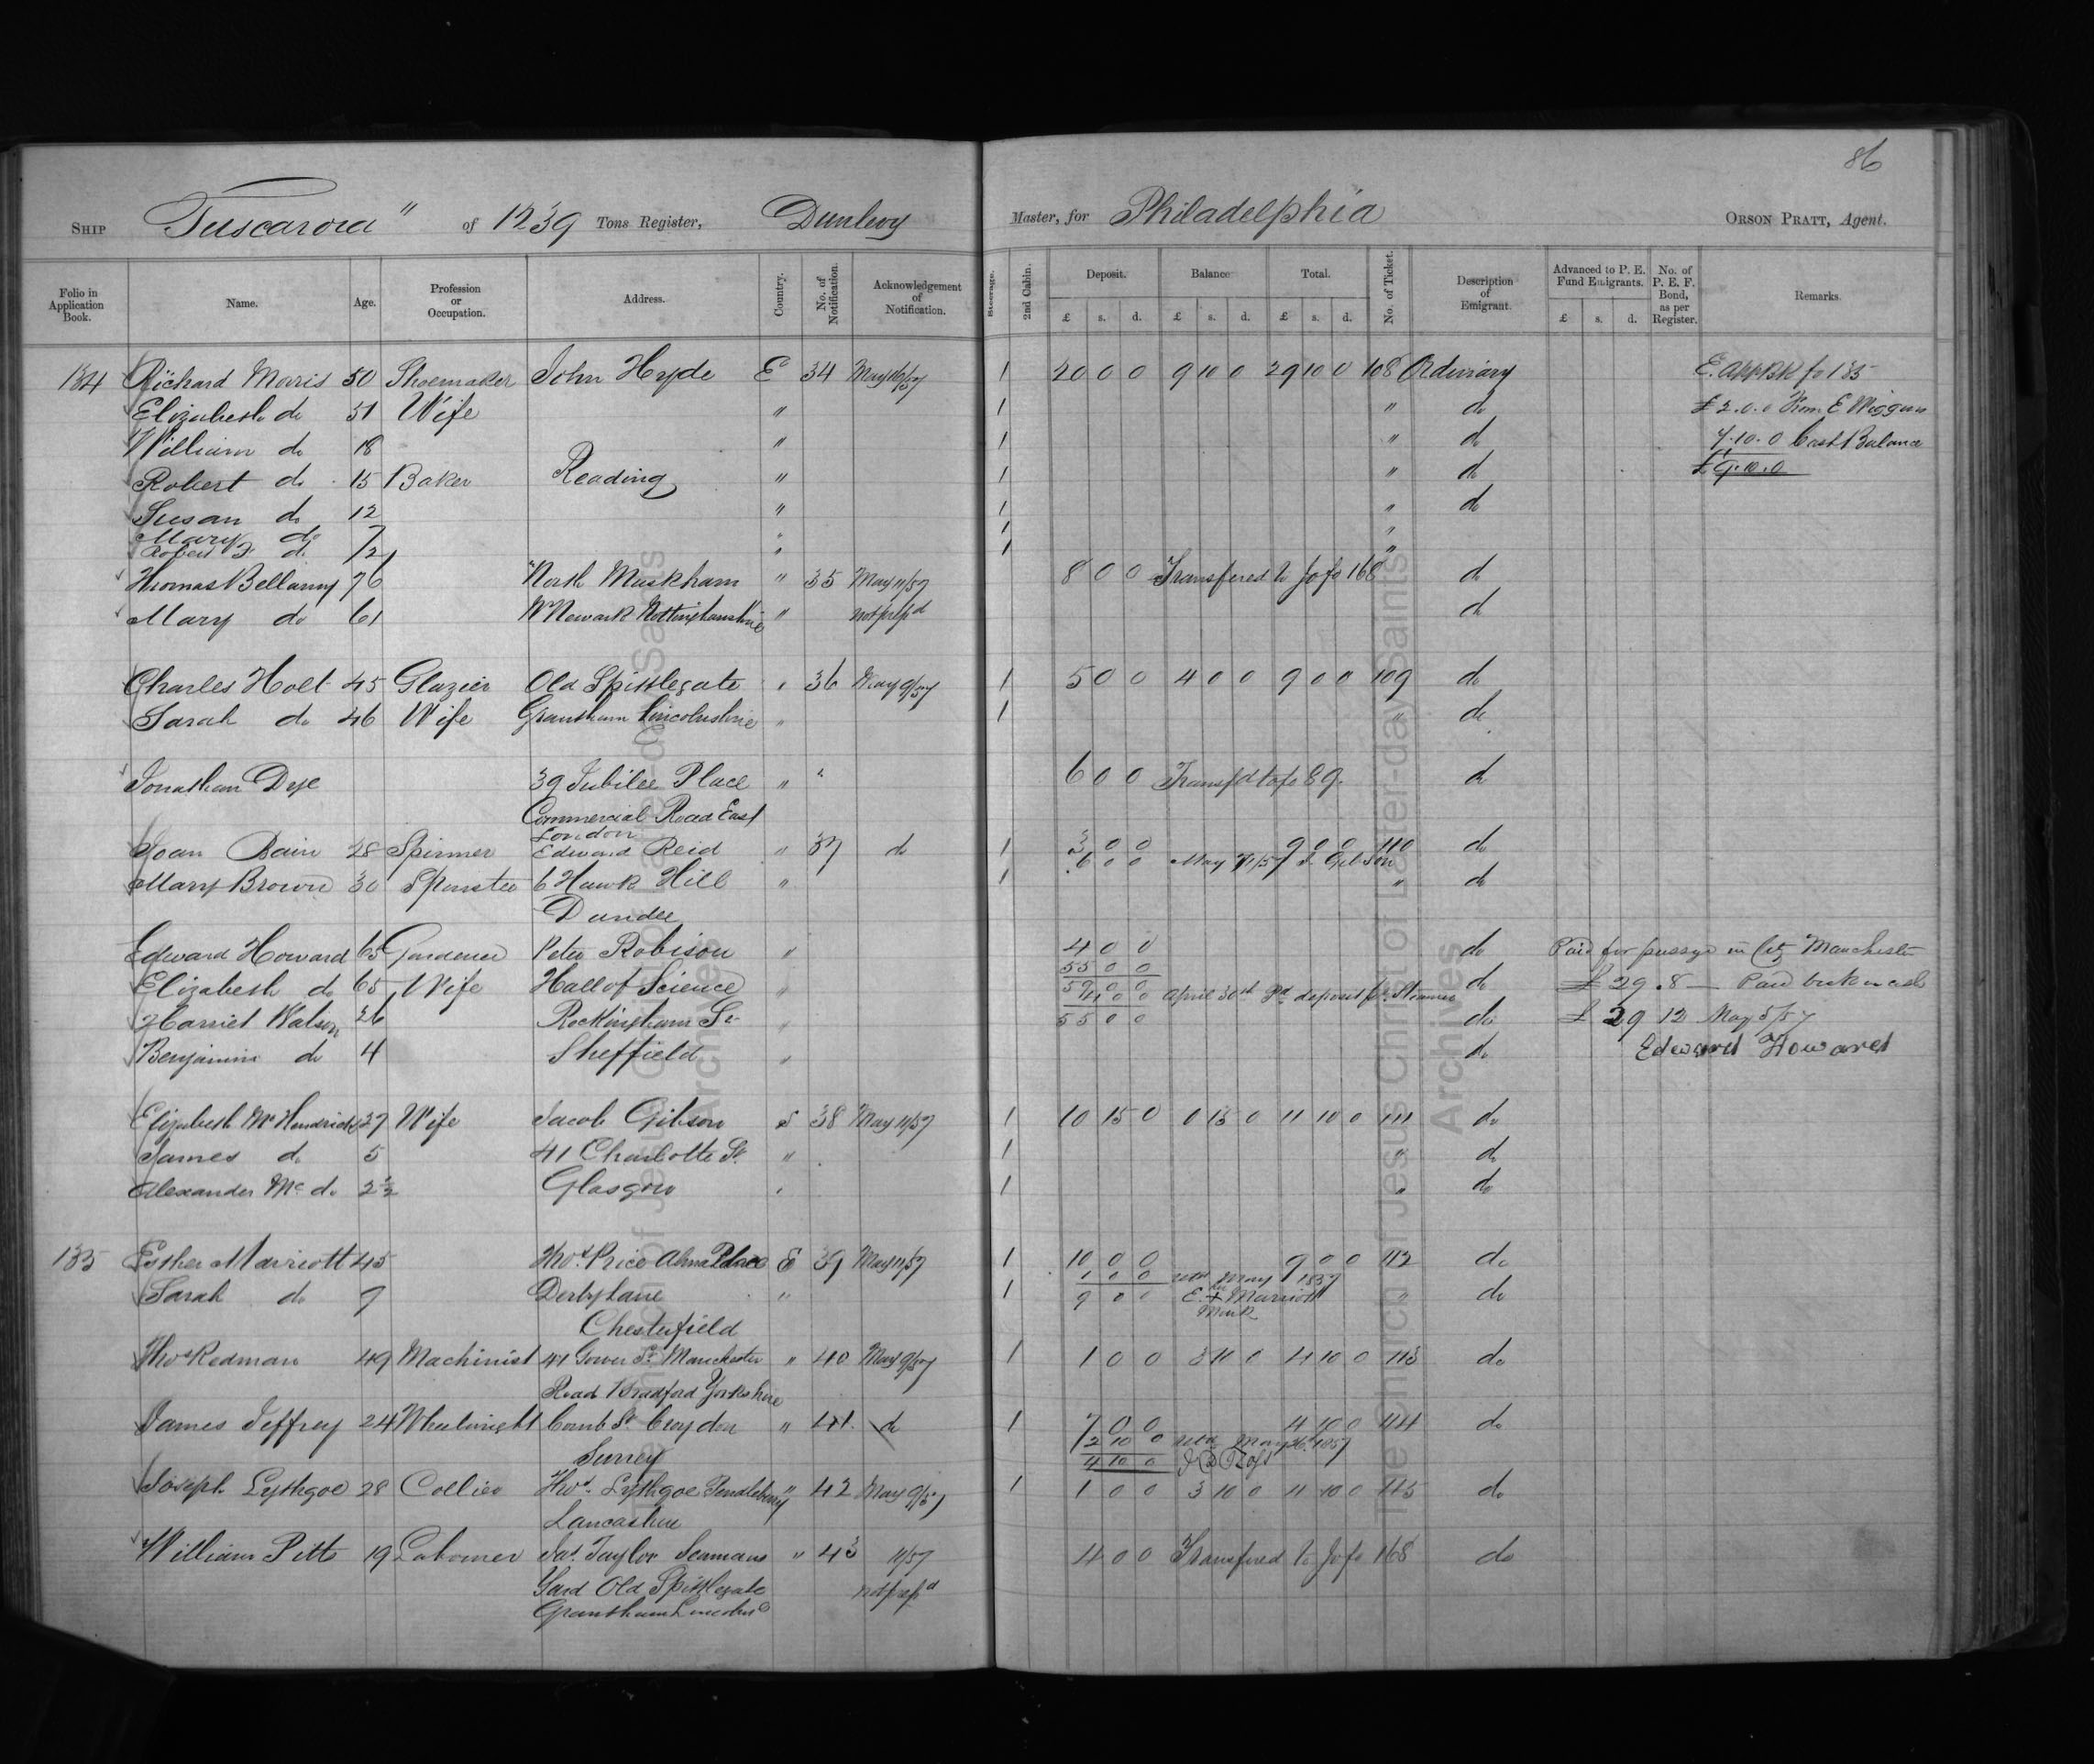 86
SHIP "Tuscarora" of 1239 Tons Register, Dunlevy Master, for Philadelphia ORSON PRATT, Agent.
Folio in Application Book. Name. Age. Profession or Occupation. Address. Country. No. of Notification. Acknowledgement of Notification. Steerage. 2nd Cabin. Deposit. Balance Total. No. of Ticket. Description of Emigrant. Advanced to P. E. Fund Emigrants. No. of P. E. F. Bond, as per Register. Remarks.
£ s. d. £ s. d. £ s. d. £ s. d.
184 Richard Morris 50 Shoemaker John Hyde E 34 May 16/57 1 20 0 0 9 10 0 29 10 0 108 Ordinary E. App BK fo 185
Elizabeth do 51 Wife " 1 " do £2.0.0 from E Wiggins
William do 18 " 1 " do 7.10.0 Cash Balance
Robert do 15 Baker Reading " 1 " do £9.10.0
Susan do 12 " 1 " do
Mary do 7 " 1 "
Robert do 1/2 " 1 "
Thomas Bellamy 76 North Muskham " 35 May 11/57 8 0 0 Transfered to Jo fo 168 do
Mary do 61 Nr Newark Nottinghamshire " not prepd do
Charles Holt 45 Glazier Old Spittlegate " 36 May 9/57 1 5 0 0 4 0 0 9 0 0 109 do
Sarah do 46 Wife Grantham Lincolnshire " 1 " do
Jonathan Dye 39 Jubilee Place " " 6 0 0 Transfd to fo 89. do
Commercial Road East
London
Joan Bain 28 Spinner Edward Reid " 37 do 1 3 0 0 9 0 0 110 do
6 0 0 May 11/57 J. Gibson
Mary Brown 30 Spinster 6 Hawk Hill " 1 " do
Dundee
Edward Howard 65 Gardener Peter Robison " 4 0 0 do Paid for passage in City Manchester
55 0 0
Elizabeth do 65 Wife Hall of Science " 59 0 0 do £29.8 — Paid back in cash
4 0 0 April 30th Pd deposit pr Steamer
Harriet Watson 26 Rockingham St " 55 0 0 do £29 12 May 5/57
Benjamin do 4 Sheffield " do Edward Howard
Elizabeth McHendrick 27 Wife Jacob Gibson S 38 May 11/57 1 10 15 0 0 15 0 11 10 0 111 do
James do 5 41 Charlotte St. " 1 " do
Alexander Mc do 2 1/2 Glasgow " 1 " do
185 Esther Marriott 45 Thos. Price Alma Place E 39 May 11/57 1 10 0 0 9 0 0 112 do
1 0 0 May 1857
Sarah do 9 Derby Lane " 1 9 0 0 E. + Marriott " do
Mark
Chesterfield
Thos Redman 49 Machinist 41 Gower St Manchester " 40 May 9/57 1 1 0 0 3 10 0 4 10 0 113 do
Road Bradford Yorkshire
James Jeffrey 24 Wheelwright Comb St Croydon " 41. do 1 7 0 0 4 10 0 114 do
2 10 0 May 1857
Surrey 4 10 0
Joseph Lythgoe 28 Collier Thos. Lythgoe Pendlebury " 42 May 9/57 1 1 0 0 3 10 0 4 10 0 115 do
Lancashire
William Pitts 19 Labourer Jas. Taylor Seamans " 43 11/57 4 0 0 Transfered to Jo fo 168 do
Yard Old Spittlegate not prepd
Grantham Lincolns
The Church of Jesus Christ of Latter-day Saints
Archives